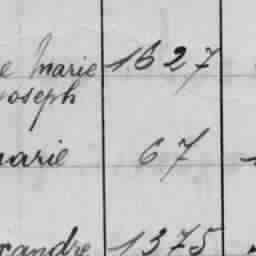 e Marie 1627
Joseph
marie 67
xandre 1375